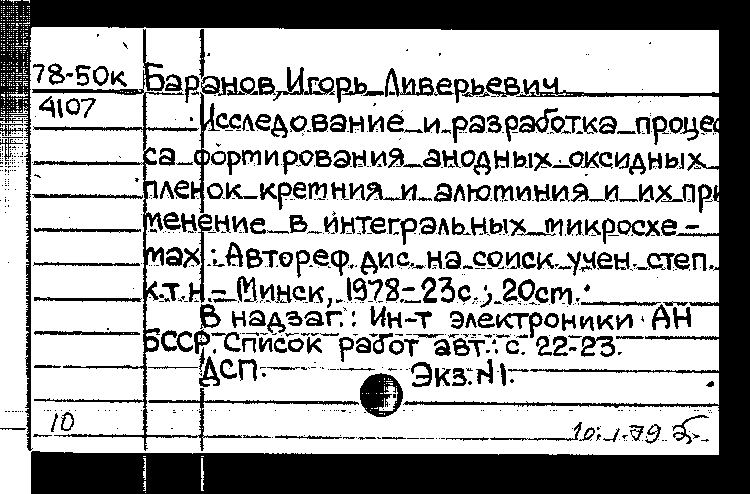 78-50к Баранов, Игорь Ливерьевич
4107
Исследование и разработка процес
са формирования анодных оксидных
пленок кремния и алюминия и их при
менение в интегральных микросхе-
мах : Автореф. дис. на соиск. учен. степ.
к.т.н - Минск, 1978 - 23с. ; 20см.
В надзаг.: Ин-т электроники АН
БССР. Список работ авт.: с. 22-23.
ДСП. Экз.N1.
10 10.1.79